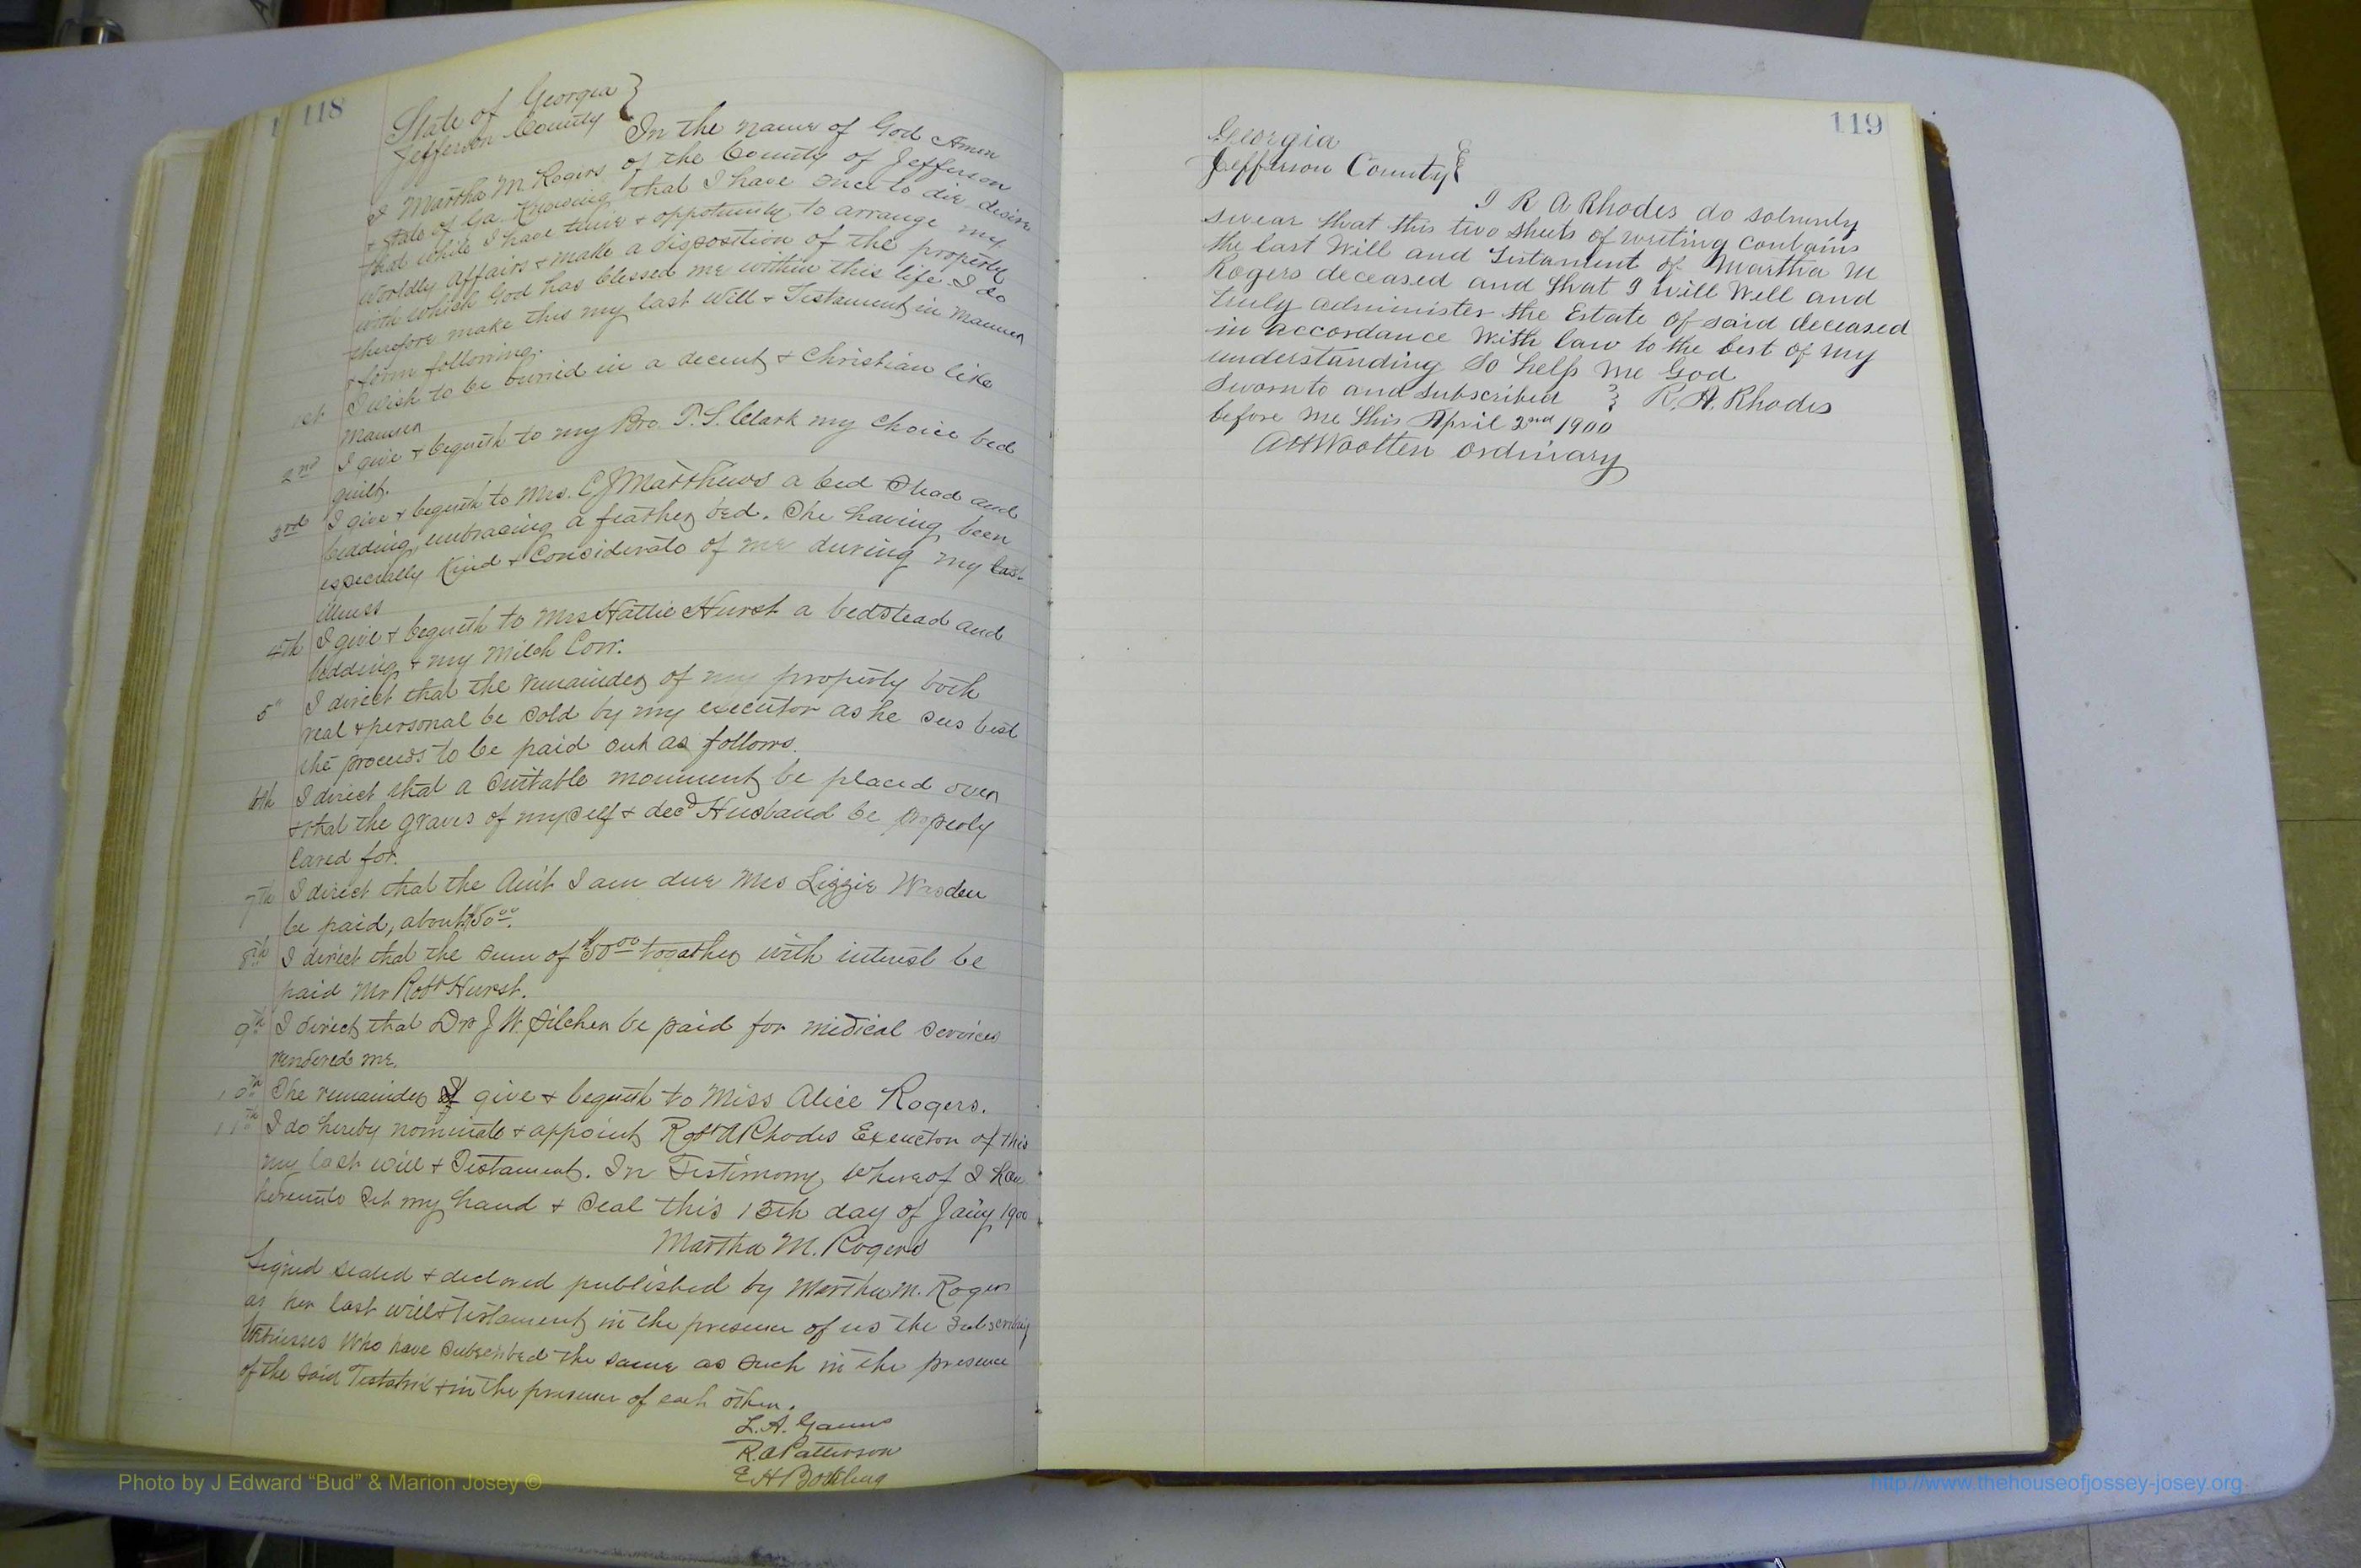 118
State of Georgia }
Jefferson County
In the name of God Amen
I Martha M. Rogers of the County of Jefferson
+ State of Ga. Knowing that I have once to die desire
that while I have time + opportunity to arrange my
worldly affairs + make a disposition of the property
with which God has blessed me within this life I do
therefore make this my last will + Testament, in manner
+ form following.
1st I wish to be buried in a decent + Christian like
manner
2nd I give + bequeth to my Bro. T. S. Clark my choice bed
quilt.
3rd I give + bequeth to Mrs. C J Matthews a bed stead and
bedding, embracing a feather bed. She having been
especially kind + Considerate of me during my last
illness
4th I give + bequeth to Mrs Hattie Hurst a bedstead and
bedding + my milch Cow.
5" I direct that the remainder of my property both
real + personal be sold by my executor as he sees best
the proceeds to be paid out as follows.
6th I direct that a suitable monument be placed over
+ that the graves of myself + decd Husband be properly
Cared for.
7th I direct that the Am't I am due Mrs Lizzie Wasden
be paid, about $50.00.
8th I direct that the sum of $50.00 together with interest be
paid Mr Robt Hurst.
9th I direct that Dr J W Pilcher be paid for medical services
rendered me.
10th The remainder I give + bequeth to Miss Alice Rogers.
11th I do hereby nominate + appoint Robt A Rhodes Executor of this
my last will + Testament. In Testimony whereof I have
hereunto set my hand + seal this 15th day of Jany 1900
Martha M. Rogers
Signed sealed + declared published by Martha M. Rogers
as her last will + Testament in the presence of us the subscribing
Witnesses who have subscribed the same as such in the presence
of the said Testatrix + in the presence of each other.
L. A. 
R. A Patterson
E H 
119
Georgia
Jefferson County
I R A Rhodes do solmnly
swear that this two sheets of writing contains
the last Will and Testament of Martha M
Rogers deceased and that I will Well and
truly administer the Estate of said deceased
in accordance with law to the best of my
understanding So help me God
Sworn to and subscribed } R. A. Rhodes
before me this April 2nd 1900
A H Wootten Ordinary
Photo by J Edward “Bud” & Marion Josey ©
http://www.thehouseofjossey-josey.org